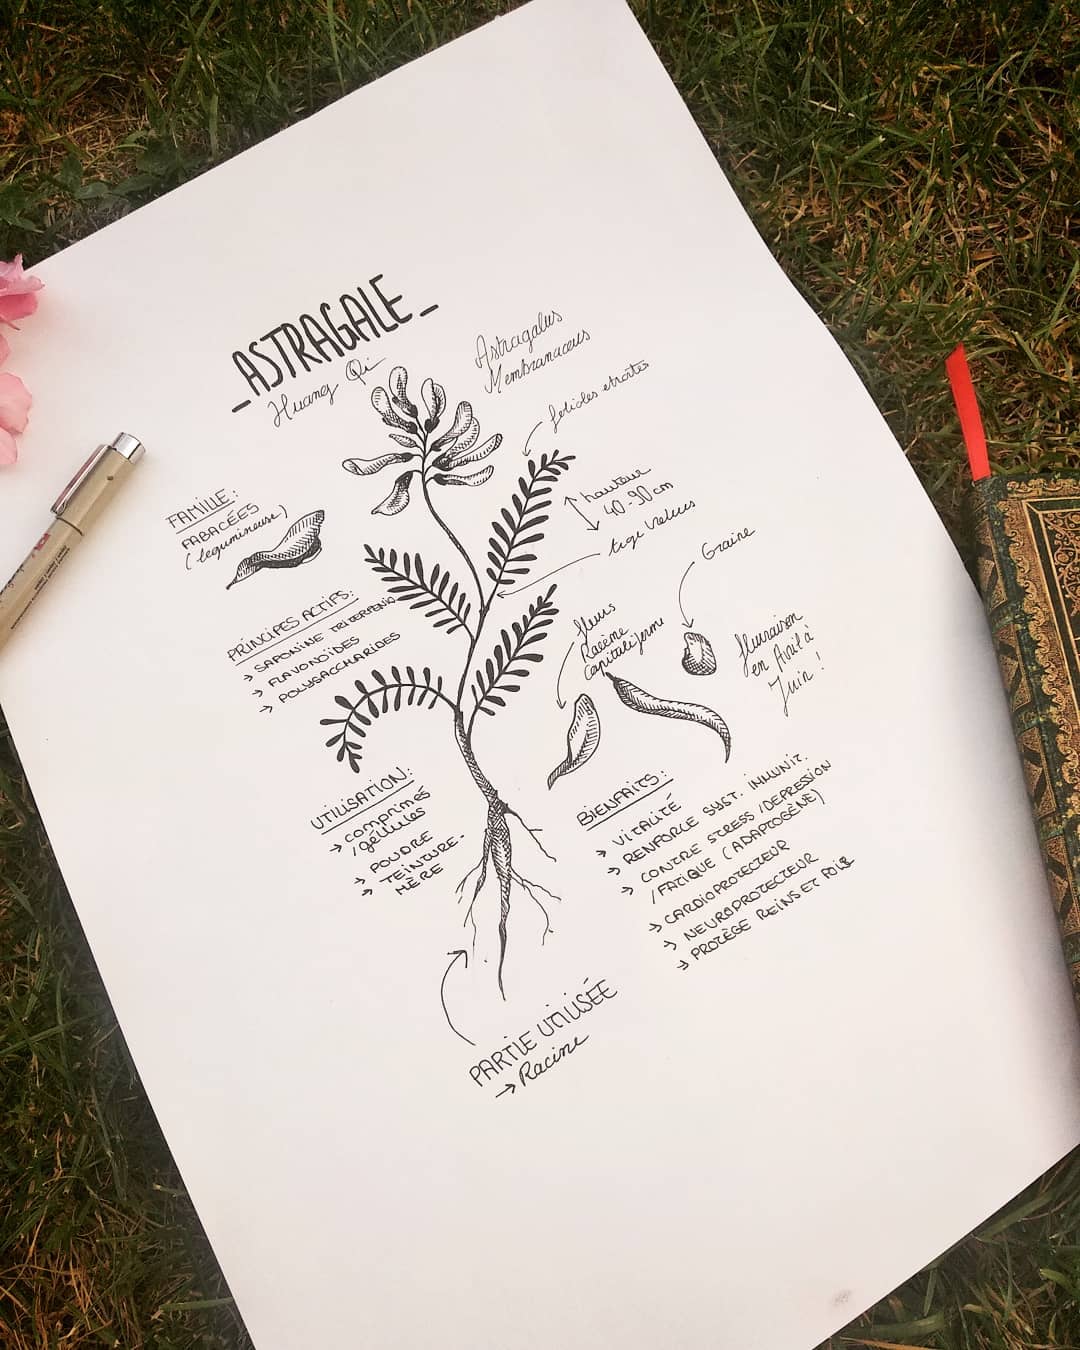 _ASTRAGALE_
Huang Qi
Astragalus
Membranaceus
folioles etroites
hauteur
40-90 cm
tige velues
Graine
FAMILLE:
FABACÉES
(legumineuse)
PRINCIPES ACTIFS:
→ SAPONINE TRITERPENIQ
→ FLAVONOÏDES
→ POLYSACCHARIDES
fleurs
Racème
Capituliforme
fleuraison
en Avril à
Juin !
UTILISATION:
→ comprimés
/gélules
→ POUDRE
→ TEINTURE-
MÈRE
BIENFAITS:
→ VITALITÉ
→ RENFORCE SYST. IMMUNIT.
→ CONTRE STRESS/DEPRESSION
/FATIGUE (ADAPTOGÈNE)
→ CARDIOPROTECTEUR
→ NEUROPROTECTEUR
→ PROTÈGE REINS ET FOIE
PARTIE UTILISÉE
→ Racine